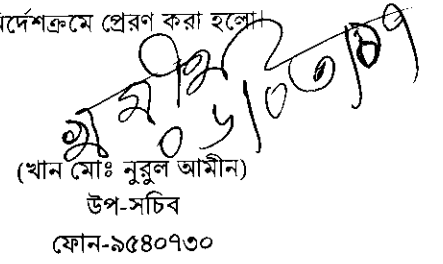 নির্দেশক্রমে প্রেরণ করা হলো।
০৬/০৩/১৭
(খান মোঃ নুরুল আমীন)
উপ-সচিব
ফোন-৯৫৪০৭৩০